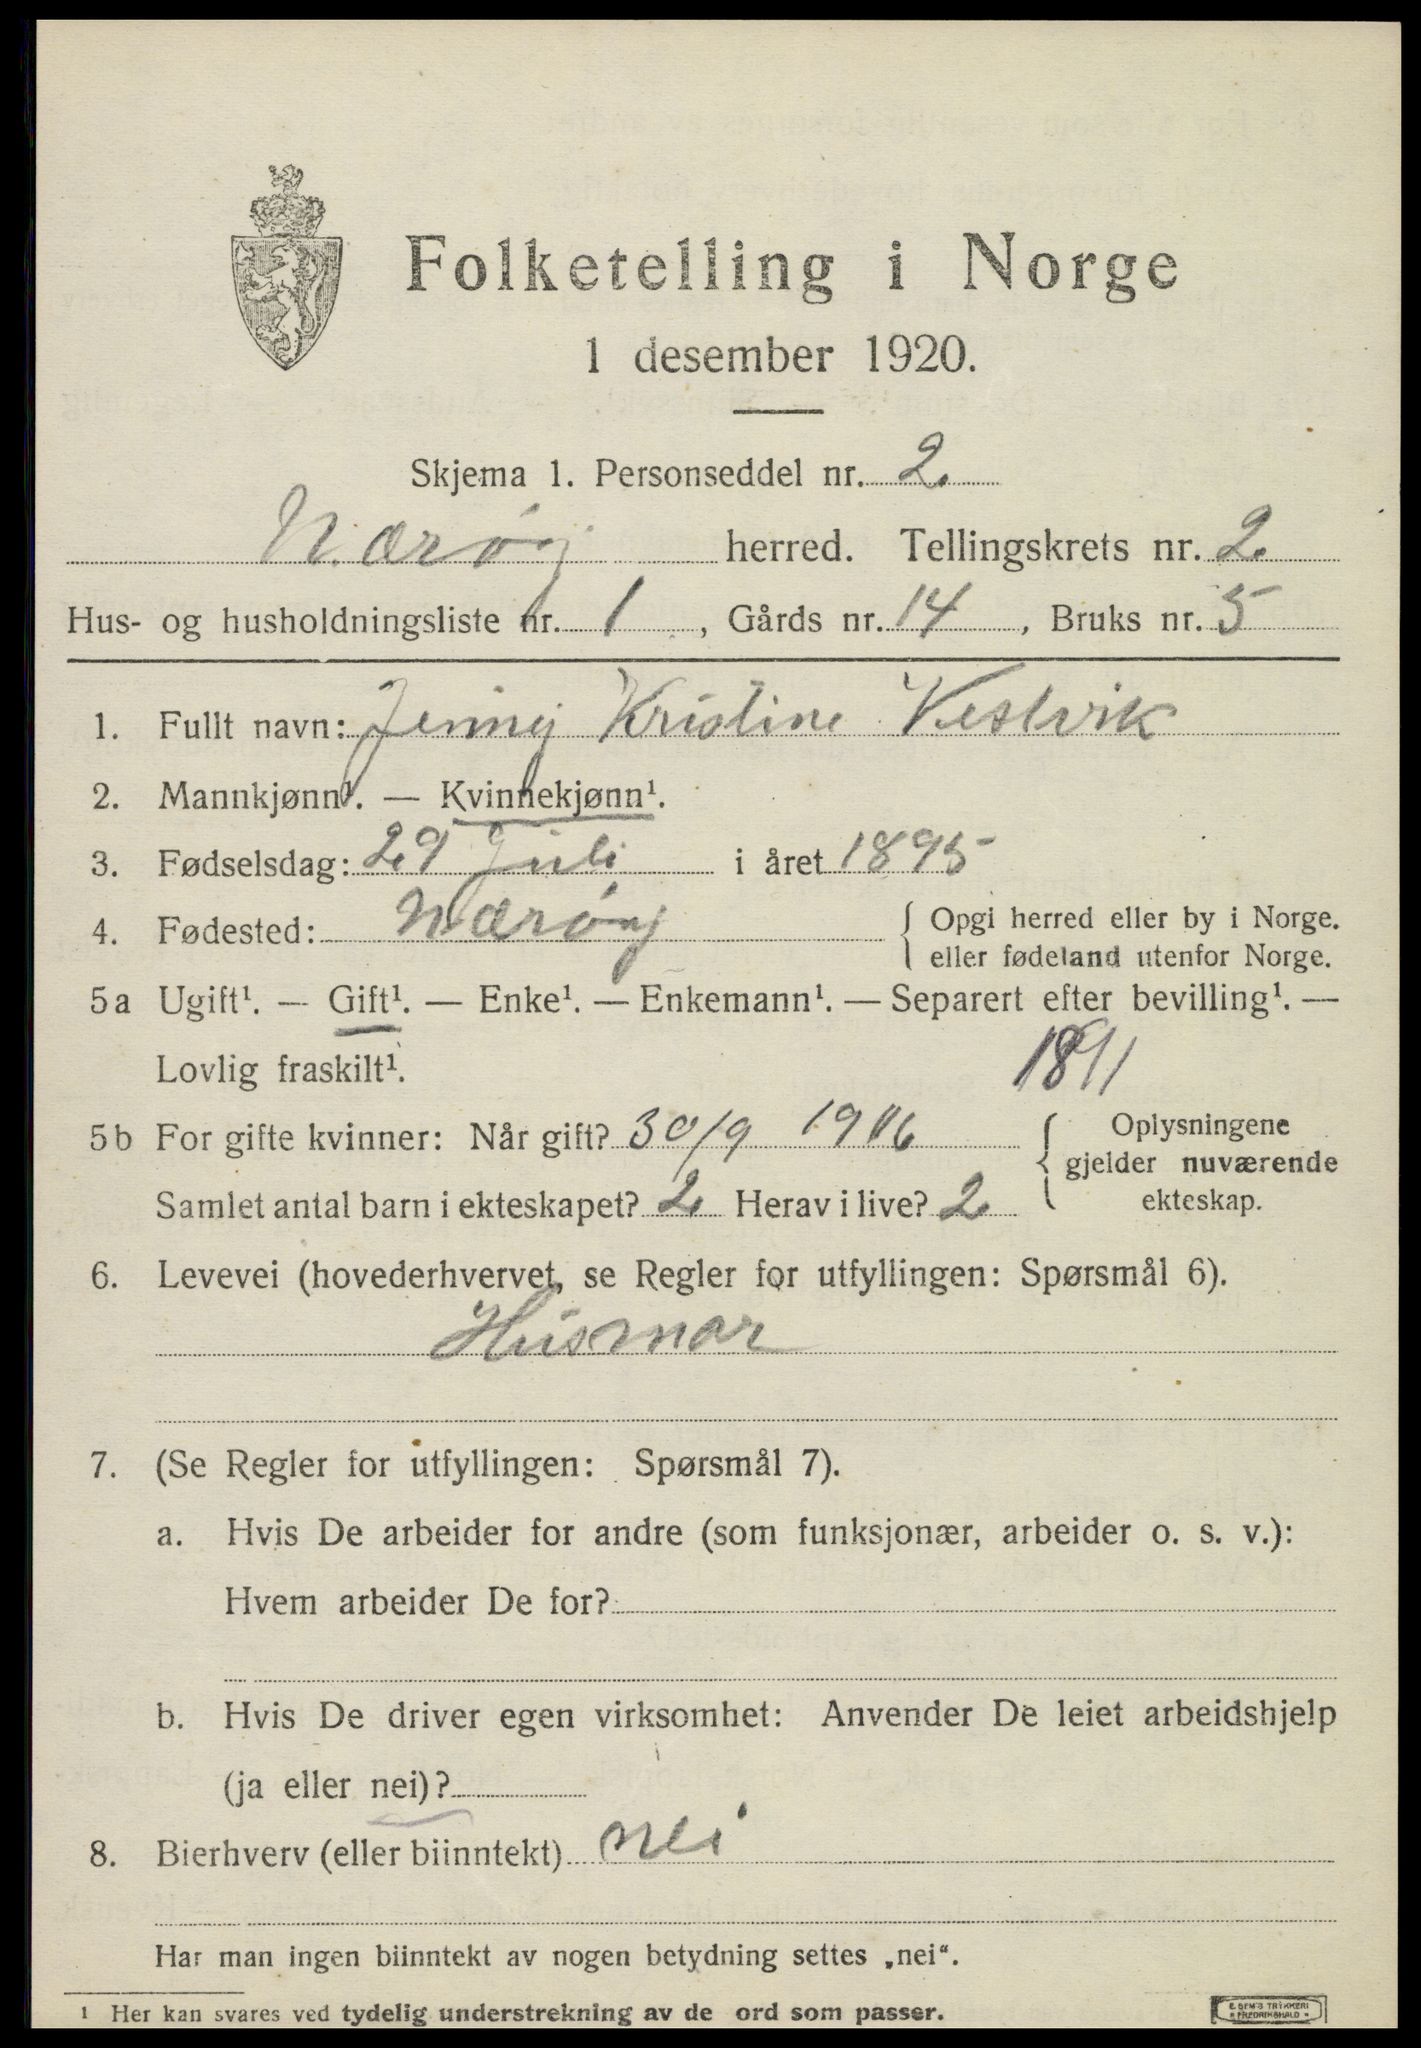 Folketelling i Norge
1 desember 1920.
Skjema 1. Personseddel nr. 2
Nærøy herred. Tellingskrets nr. 2
Hus- og husholdningsliste nr. 1, Gårds nr. 14, Bruks nr. 5
1. Fullt navn: Jenny Kristine Vestvik
2. Mannkjønn¹. — Kvinnekjønn¹.
3. Fødselsdag: 29 Juli i året 1895
4. Fødested: Nærøy { Opgi herred eller by i Norge.
eller fødeland utenfor Norge.
5a Ugift¹. — Gift¹. — Enke¹. — Enkemann¹. — Separert efter bevilling¹. —
Lovlig fraskilt¹.
1891
5b For gifte kvinner: Når gift? 30/9 1916 { Oplysningene
gjelder nuværende
Samlet antal barn i ekteskapet? 2 Herav i live? 2
ekteskap.
6. Levevei (hovederhvervet, se Regler for utfyllingen: Spørsmål 6).
Husmor
7. (Se Regler for utfyllingen: Spørsmål 7).
a. Hvis De arbeider for andre (som funksjonær, arbeider o. s. v.):
Hvem arbeider De for?
b. Hvis De driver egen virksomhet: Anvender De leiet arbeidshjelp
(ja eller nei)?
8. Bierhverv (eller biinntekt) nei
Har man ingen biinntekt av nogen betydning settes „nei“.
¹ Her kan svares ved tydelig understrekning av de ord som passer.
E. SEM'S TRYKKERI
FREDRIKSHALD